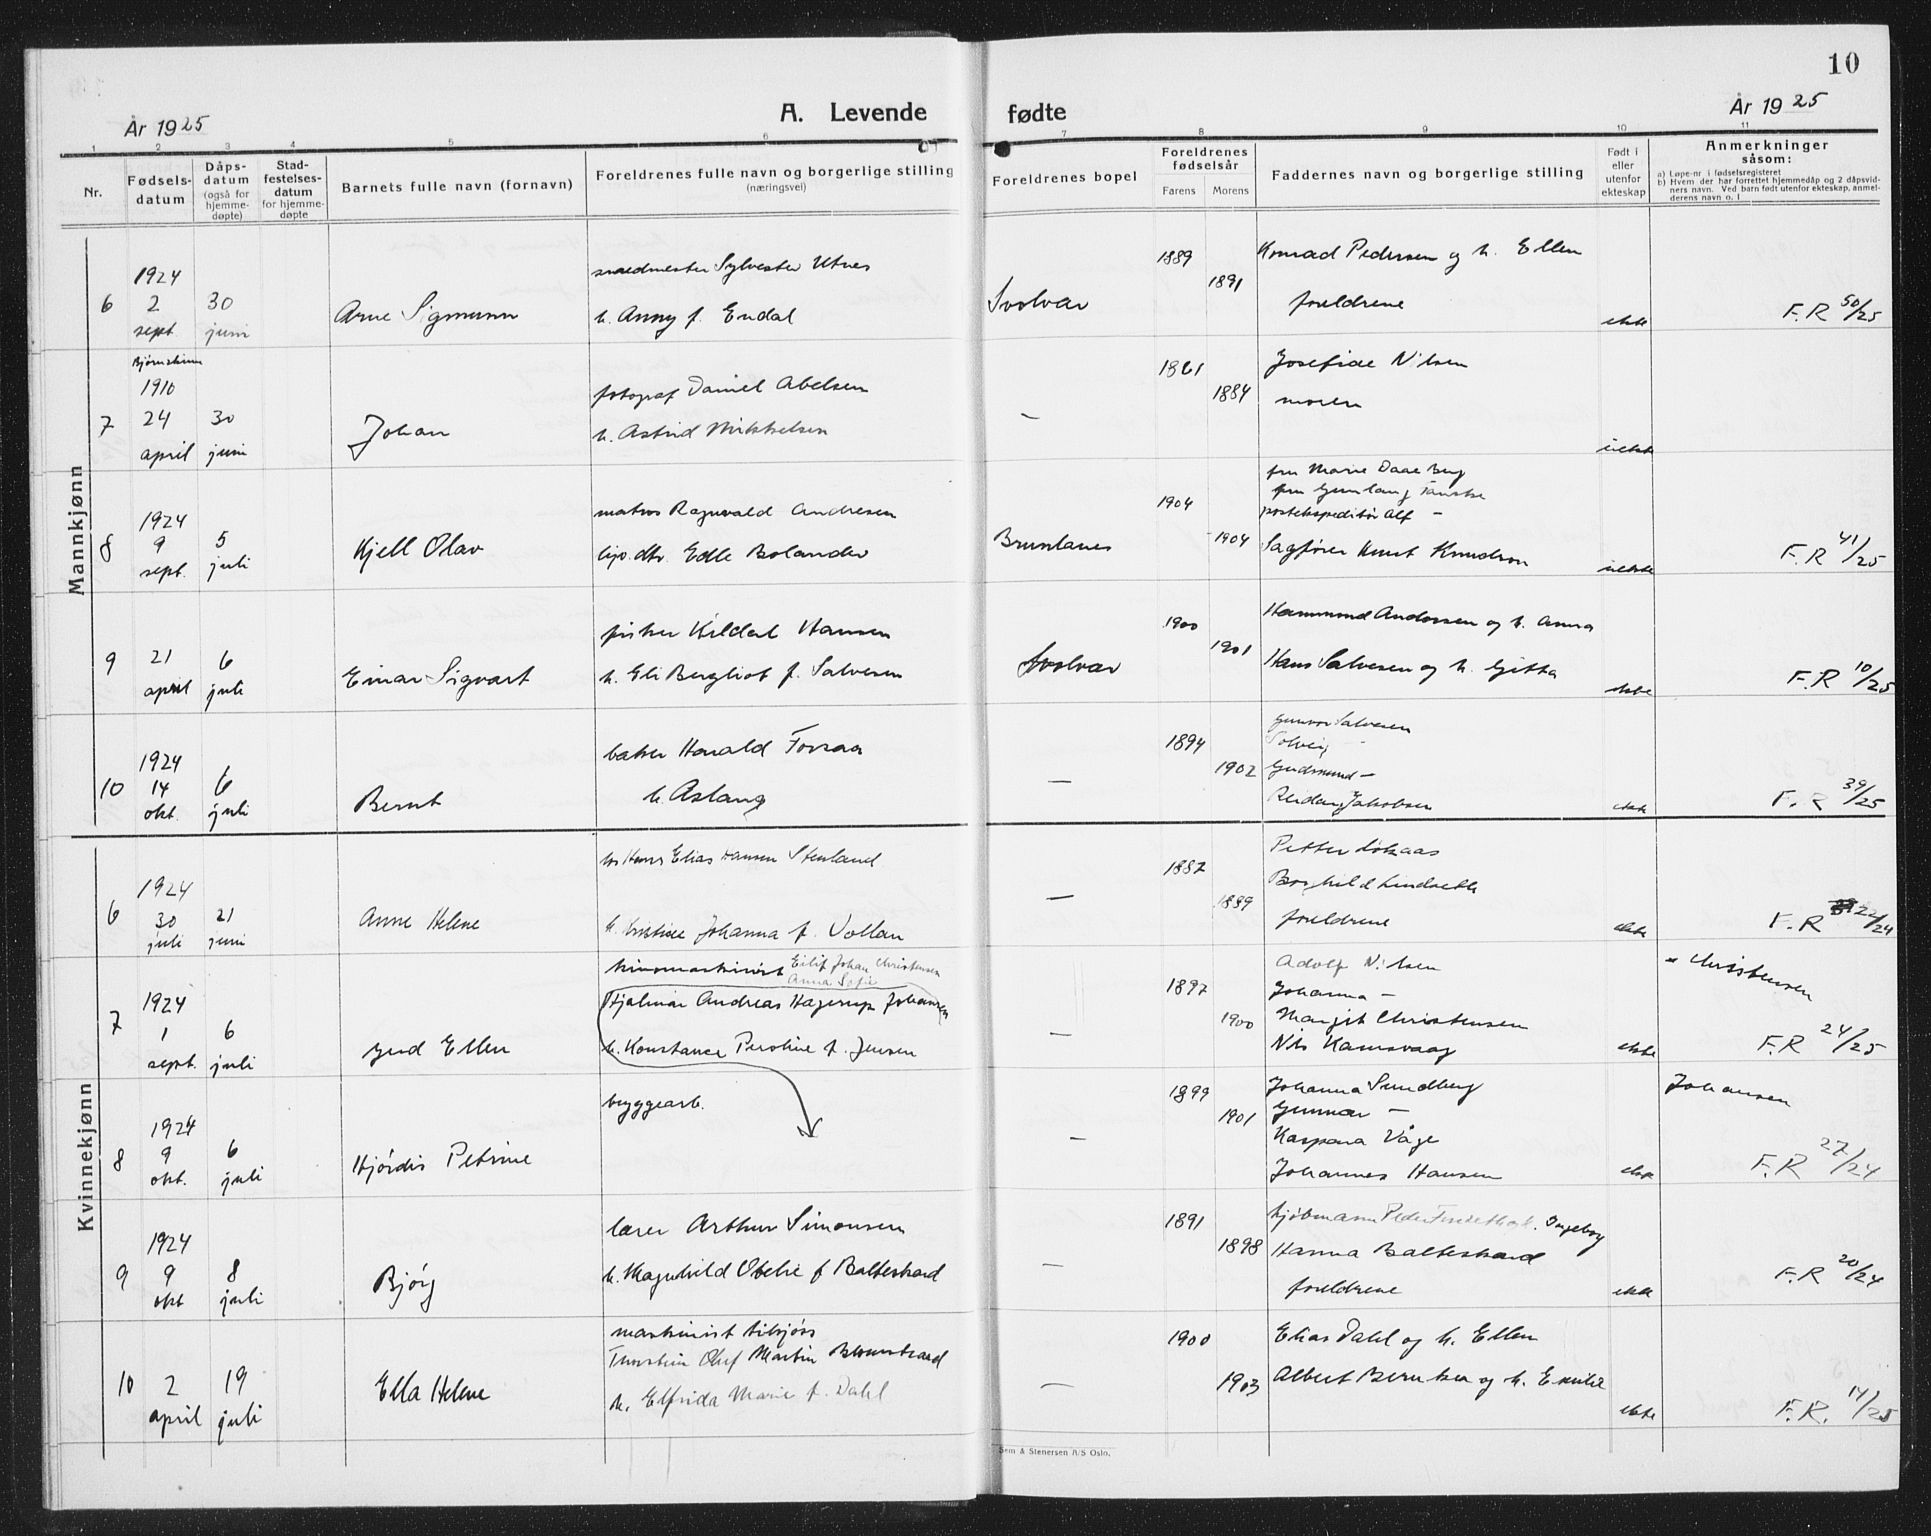 10
År 1925
A. Levende
fødte
År 1925
1 2 3 4 5 6 7 8 9 10 11
Nr.
Fødsels-
datum
Dåps-
datum
(også for
hjemme-
døpte)
Stad-
festelses-
datum
for hjemme-
døpte
Barnets fulle navn (fornavn)
Foreldrenes fulle navn og borgerlige stilling
(næringsvei)
Foreldrenes bopel
Foreldrenes
fødselsår
Farens Morens
Faddernes navn og borgerlige stilling
Født i
eller
utenfor
ekteskap
Anmerkninger
såsom:
a) Løpe-nr i fødselsregisteret
b) Hvem der har forrettet hjemmedåp og 2 dåpsvid-
ners navn. Ved barn født utenfor ekteskap, anmel-
derens navn o. l
Mannkjønn
6
1924
2
sept.
30
juni
Arne Sigmunn
Sylvester Utnes
h. Anny f. Endal
Svolvær
1889
1891
Konrad Pedersen og h. Ellen
foreldrene
ekte
F.R 50/25
7
Bjørnskinn
1910
24
april
30
juni
Johan
fotograf Daniel Abelsen
h. Astrid Mikkelsen
—
1861
1884
Josefine Nilsen
moren
uekte
8
1924
9
sept.
5
juli
Kjell Olav
matros Ragnvald Andresen
Edle Bolander
Brunlanes
1904
1904
fru Marie Daae Berg
fru Gunlaug
postekspeditør Alf —
Sagfører Knut Knudson
uekte
F.R 41/25
9
21
april
6
juli
Einar Sigvart
fisker Kildal Hansen
h. Eli Bergliot f. Salvesen
Svolvær
1900
1901
Hammond Anderssen og h. Anna
Hans Salvesen og h. Gitta
ekte
F.R 10/25
10
1924
14
okt.
6
juli
Bernt
baker Harald Forsaa
h. Aslaug
—
1894
1902
Gunvor Salvesen
Solveig —
Gudmund —
Reidar Jakobsen
ekte
F.R 39/25
Kvinnekjønn
6
1924
30
juli
21
juni
Anne Helene
Hans Elias Hansen Stenland
h. Kristine Johanna f. Vollan
—
1887
1889
Petter
Borghild Lindseth
foreldrene
ekte
F.R 22/24
7
1924
1
sept.
6
juli
Gerd Ellen
kinomaskinist Eilif Johan Christensen
Anna Sofie
Hjalmar Andreas Hagerup Johansen
h. Konstance Perstine f. Jensen
—
1897
1900
Adolf Nilsen
Johanna —
Margit Christensen
Nils Kamsvaag
ekte
Christensen
F.R 24/25
8
1924
9
okt.
6
juli
Hjördis Petrine
bryggearb.
—
1899
1901
Johanna Sundberg
Gunnar —
Kaspara Våge
Johannes Hansen
ekte
Johansen
F.R 27/24
9
1924
9
okt
8
juli
Bjørg
lærer Arthur Simonsen
h. Magnhild Otelie f Balteskard
—
1891
1898
kjøbmann Peder h. Ingeborg
Hanna Balteskard
foreldrene
ekte
F.R 20/24
10
2
april
19
juli
Ella Helene
maskinist tilsjøss
Thorstein Oluf Martin Blomstrand
h. Elfrida Marie f. Dahl
—
1900
1903
Elias Dahl og h. Ellen
Albert Berntsen og h. Emilie
ekte
F.R. 14/25
Sem & Stenersen A/S Oslo.